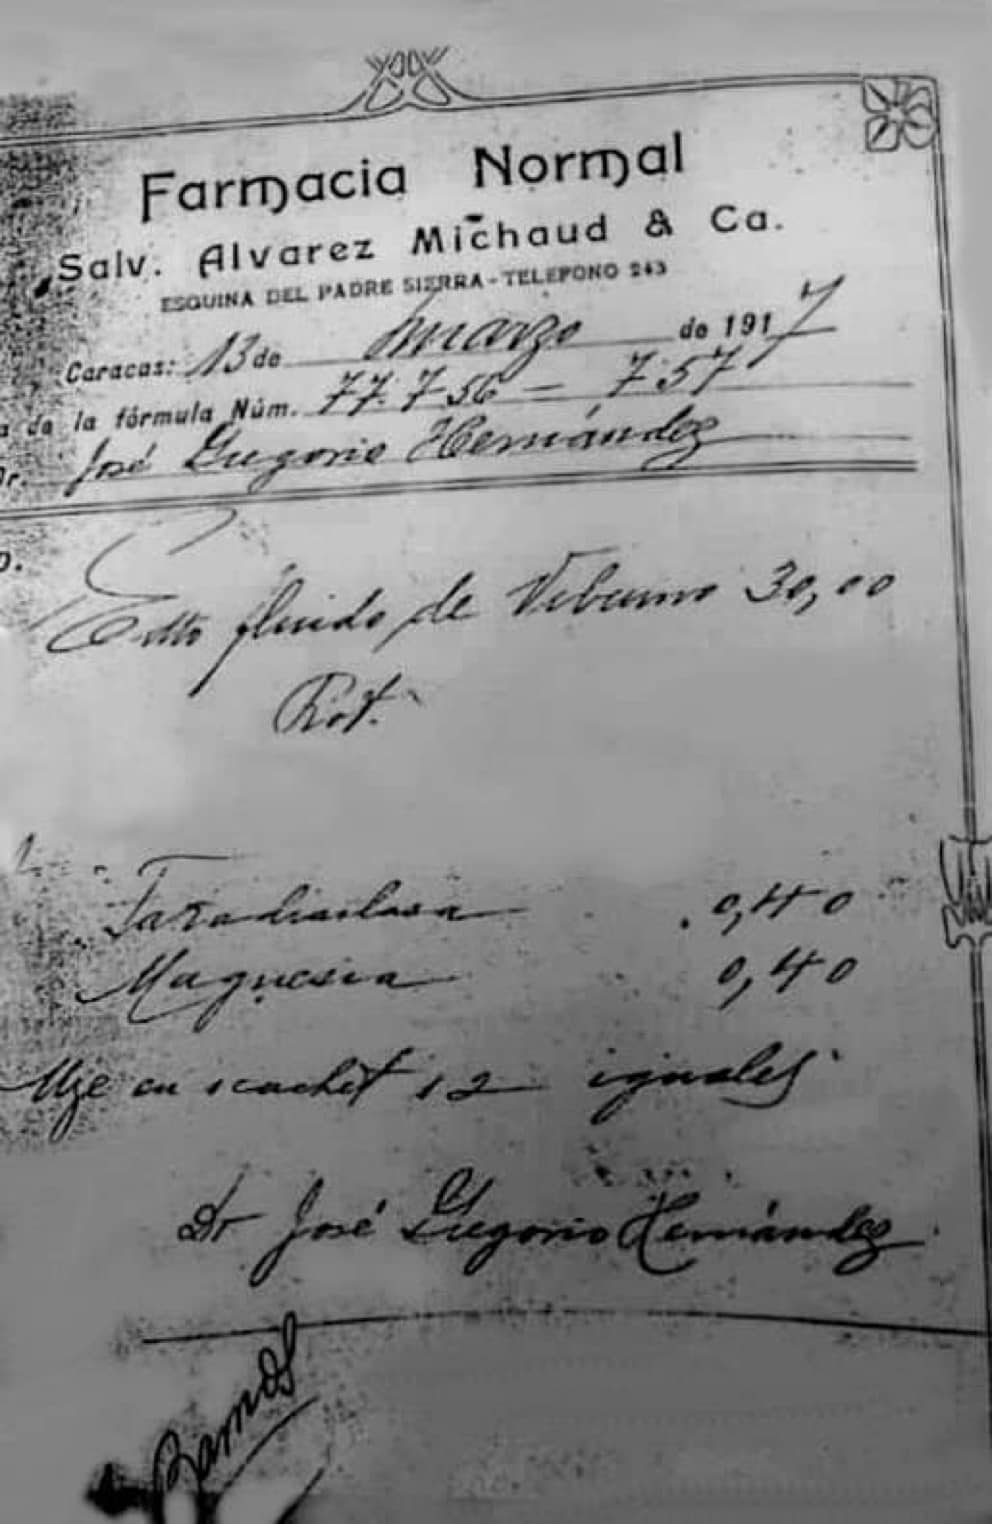 Farmacia Normal
Salv. Alvarez Michaud & Ca.
ESQUINA DEL PADRE SIERRA - TELEFONO 243
Caracas: 13 de marzo de 1917
a de la fórmula Núm. 77.756 - 757
Dr. José Gregorio Hernández
p.
Extto fluido de Viburno 30,00
Rot.
0,40
Magnesia 0,40
en cachet 12 iguales
Dr José Gregorio Hernández